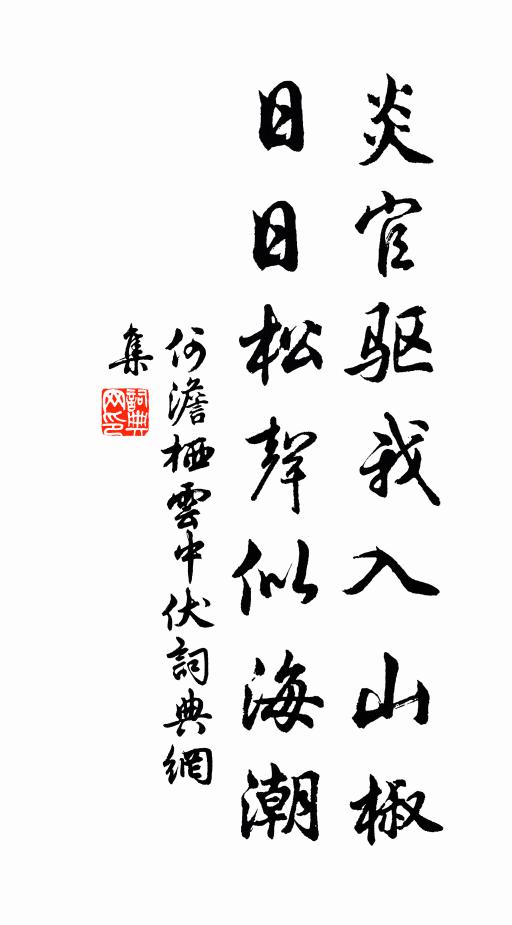 炎官驱我入山椒
日日松聲似海潮
何澹栖雲中伏詞典網
集
詞典
网印